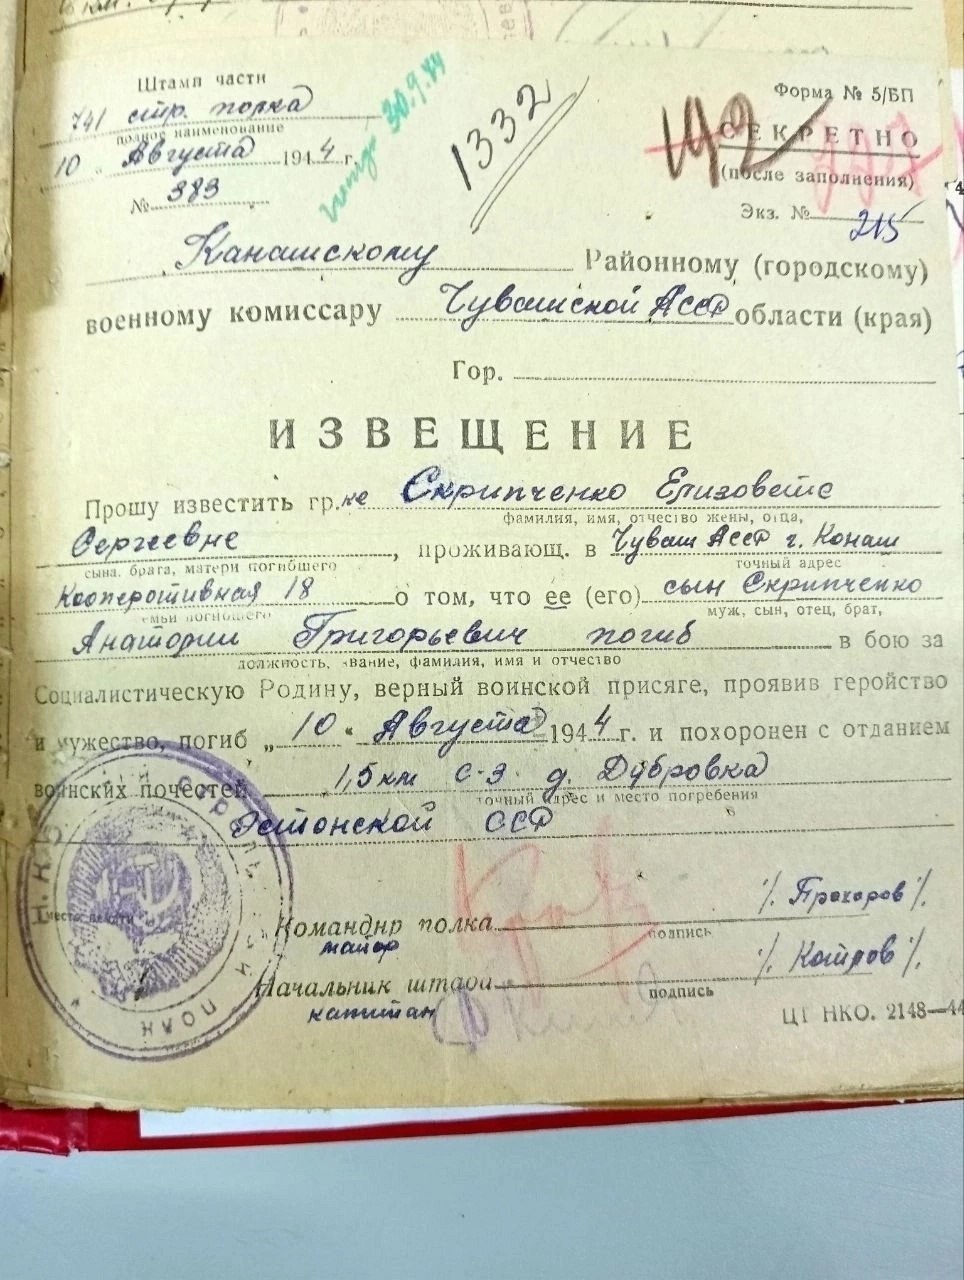 Штамп части
741 стр. полка
полное наименование
„10 „ Августа 1944 г.
№ 383
30.9.44
1332
Форма № 5/БП
СЕКРЕТНО
(после заполнения)
Экз. № 215
Канашскому Районному (городскому)
военному комиссару Чувашской АССР области (края)
Гор.
ИЗВЕЩЕНИЕ
Прошу известить гр.ке Скрипченко Елизовете
фамилия, имя, отчество жены, отца,
Сергеевне, проживающ. в Чуваш АССР г. Конаш
сына, брата, матери погибшего точный адрес
Кооперотивная 18 о том, что ее (его) сын Скрипченко
семьи погибшего муж, сын, отец, брат,
Анатолий Григорьевич погиб в бою за
должность, звание, фамилия, имя и отчество
Социалистическую Родину, верный воинской присяге, проявив геройство
и мужество, погиб „10 “ Августа 1944 г. и похоронен с отданием
воинских почестей 1,5 км с-э д. Дубровка
точный адрес и место погребения
Эстонской ССР
место печати
Командир полка /. Прохоров /.
майор подпись
Начальник штаба /. Котров /.
капитан подпись
ЦТ НКО. 2148—44